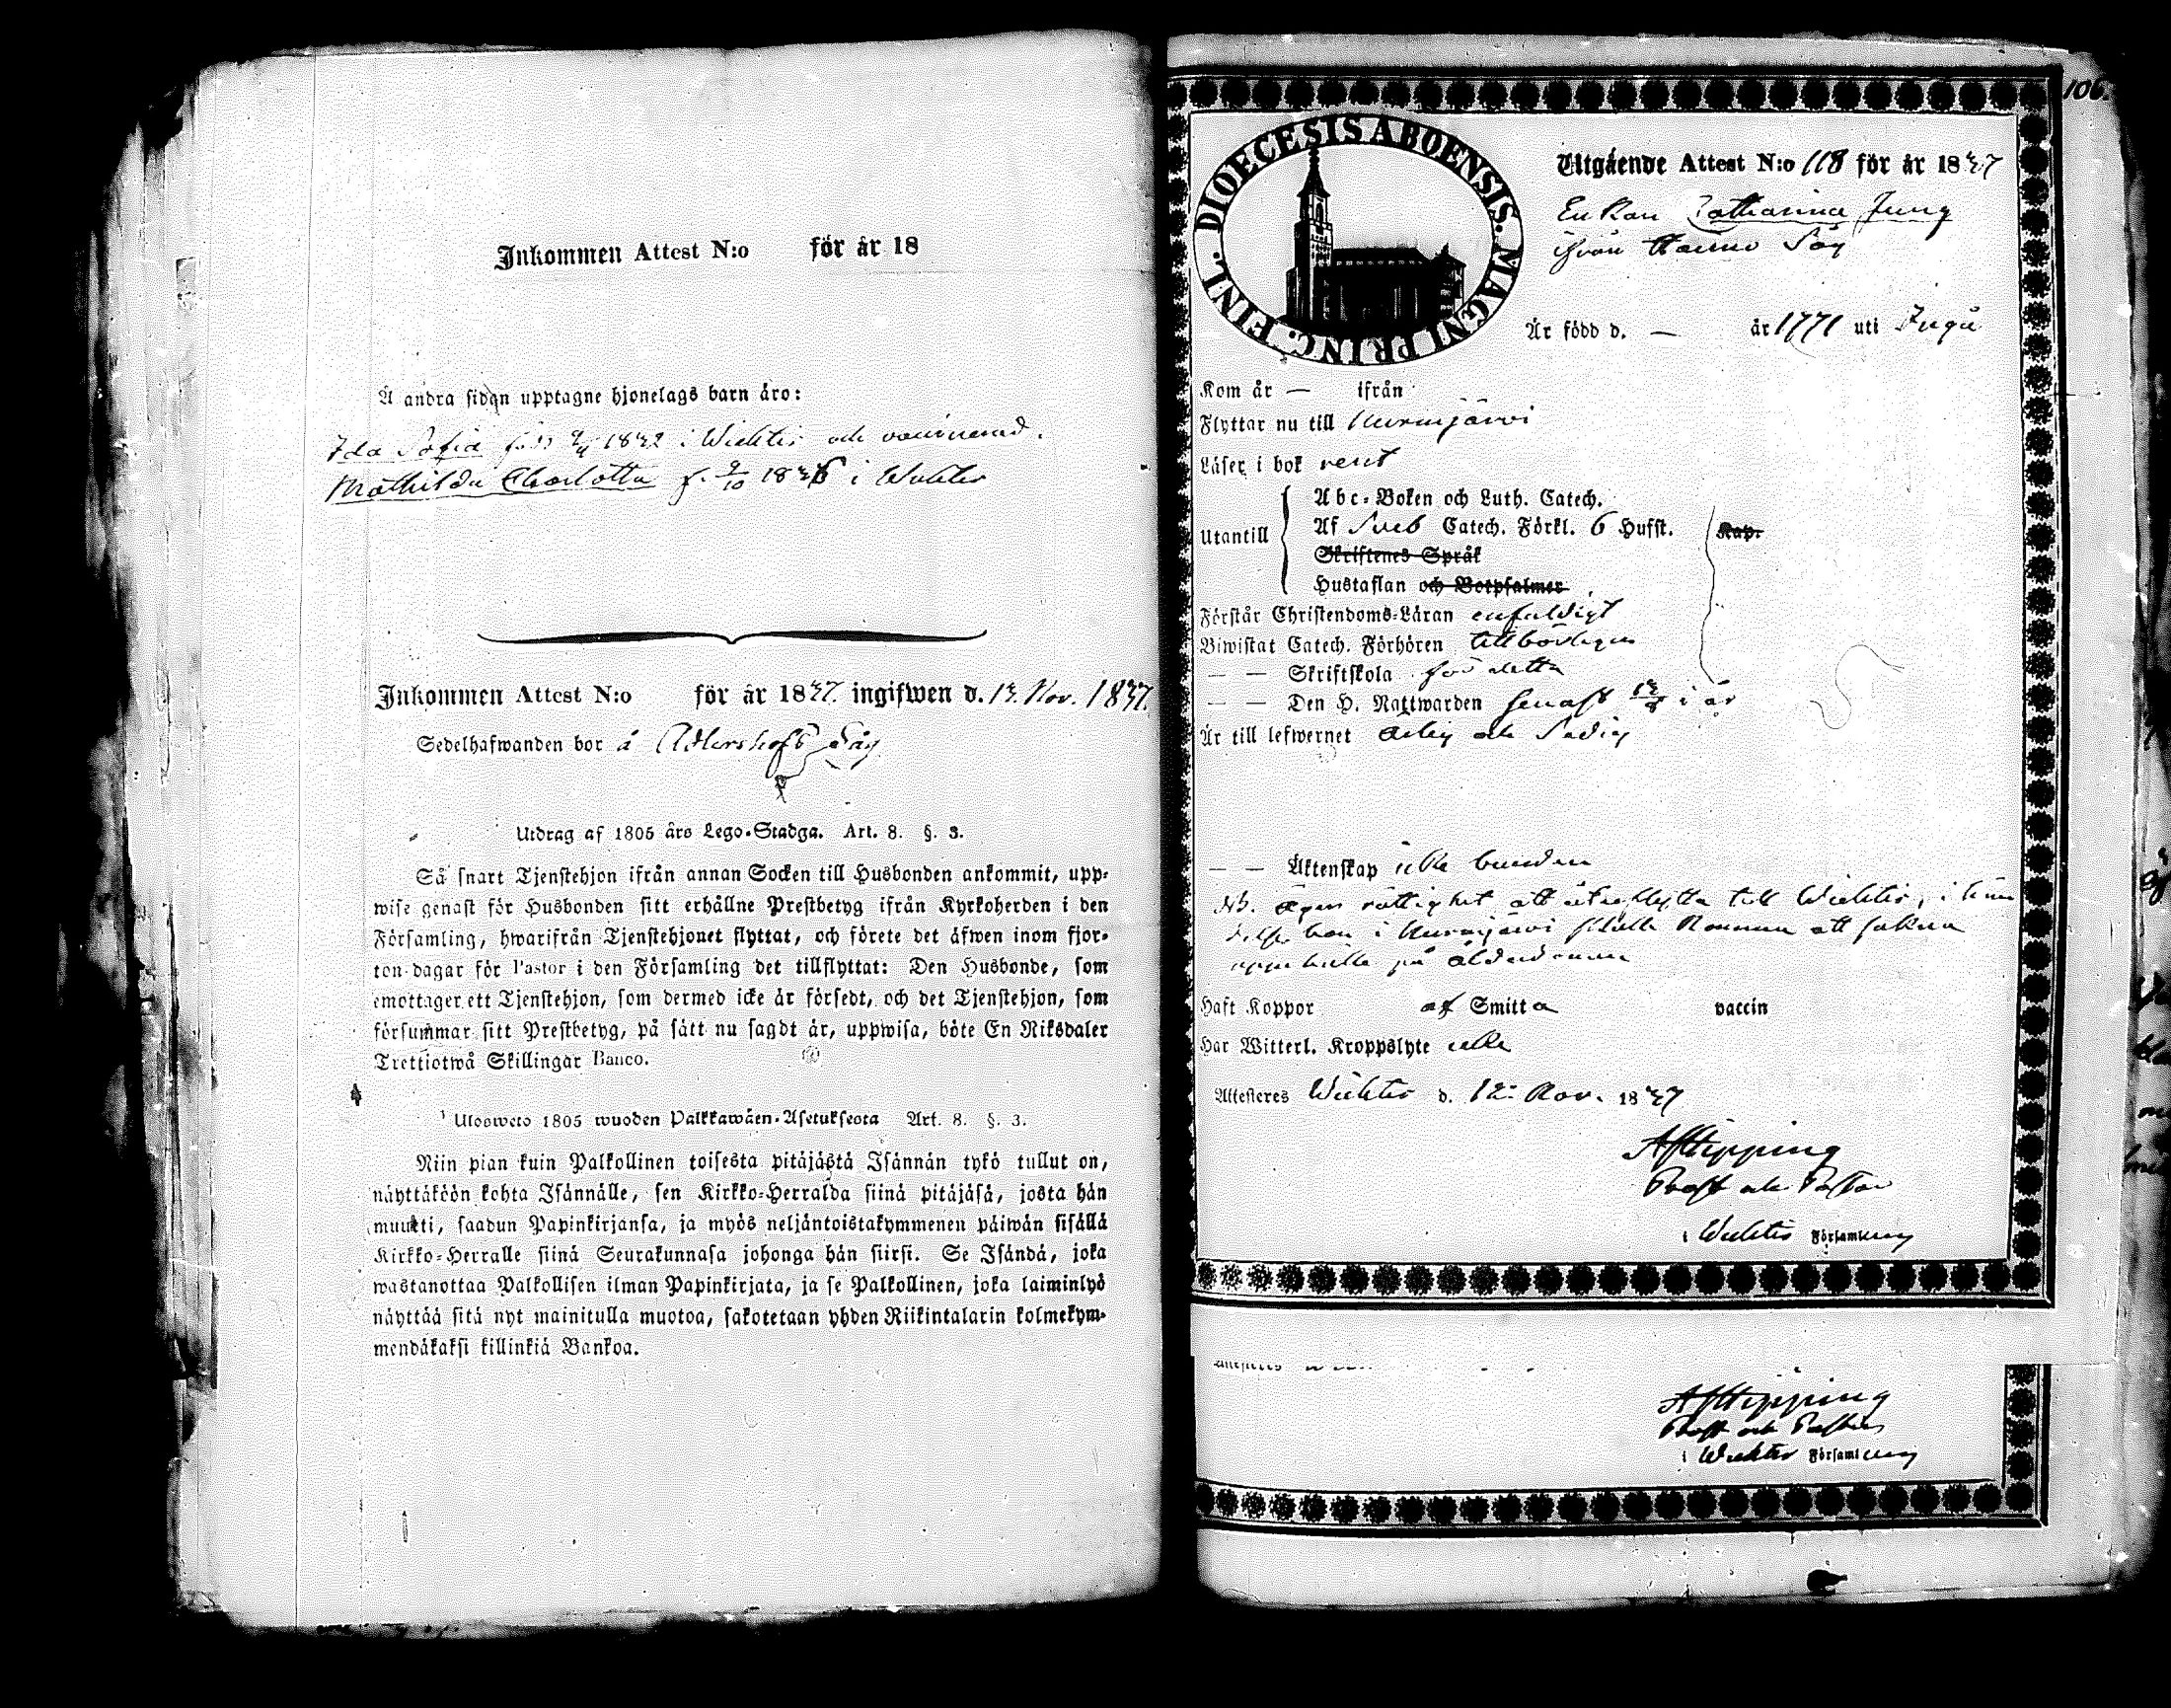 Inkommen Attest N:o för år 18
Å andra sidan upptagne hjonelags barn äro:
Ida Sofia 1832 i Wichtis och vaccinerad.
Mathilda Charlotta f. 9/10 1836 i Wichtis
Inkommen Attest N:o för år 1837. ingifwen d. 13 Nov. 1837.
Sedelhafwanden bor å Adlershofs Såg
Utdrag af 1805 års Lego-Stadga. Art. 8. §. 3.
Så snart Tjenstehjon ifrån annan Socken till Husbonden ankommit, upp-
wise genast för Husbonden sitt erhållne Prestbetyg ifrån Kyrkoherden i den
Församling, hwarifrån Tjenstehjonet flyttat, och förete det äfwen inom fjor-
ton dagar för Pastor i den Församling det tillflyttat: Den Husbonde, som
emottager ett Tjenstehjon, som dermed icke är försedt, och det Tjenstehjon, som
försummar sitt Prestbetyg, på sätt nu sagdt är, uppwisa, böte En Riksdaler
Trettiotwå Skillingar Banco.
Ulosweto 1805 wuoden Palkkawäen-Asetuksesta Art. 8. §. 3.
Niin pian kuin Palkollinen toisesta pitäjästä Isännän tykö tullut on,
näyttäköön kohta Isännälle, sen Kirkko-Herralda siinä pitäjäsä, josta hän
muutti, saadun Papinkirjansa, ja myös neljäntoistakymmenen päiwän sisällä
Kirkko-Herralle siinä Seurakunnasa johonga hän siirsi. Se Isändä, joka
wastanottaa Palkollisen ilman Papinkirjata, ja se Palkollinen, joka laiminlyö
näyttää sitä nyt mainitulla muotoa, sakotetaan yhden Riikintalarin kolmekym-
mendäkaksi killinkiä Bankoa.
106.
DIOECESIS ABOENSIS. MAGNI PRINC. FINL.
Utgående Attest N:o 118 för år 1837
Enkan Catharina Jung
ifrån Såg
Är född d. — år 1771 uti Ingå
Kom år — ifrån
Flyttar nu till Nurmijärvi
Läser i bok rent
Utantill
Abc-Boken och Luth. Catech.
Af Sveb Catech. Förkl. 6 Hufst. Kap.
Skriftenes Språk
Hustaflan och Botpsalmer
Förstår Christendoms-Läran enfaldigt
Biwistat Catech. Förhören tillbörligen
— — Skriftskola för detta
— — Den H. Nattwarden senast 13/8 i år
Är till lefwernet ärlig och sedig
— — Äktenskap icke bunden
Nb. ägen rättighet att återflytta till Wichtis, i hän
delse hon i Nurmijärvi skulle komma att sakna
uppehälle på ålderdomen
Haft Koppor af Smitta vaccin
Har Witterl. Kroppslyte icke
Attesteres Wichtis d. 12 Nov. 1837
AfHipping
Prost och Pastor
i Wichtis Församling
AfHipping
Prost och Pastor
i Wichtis Församling